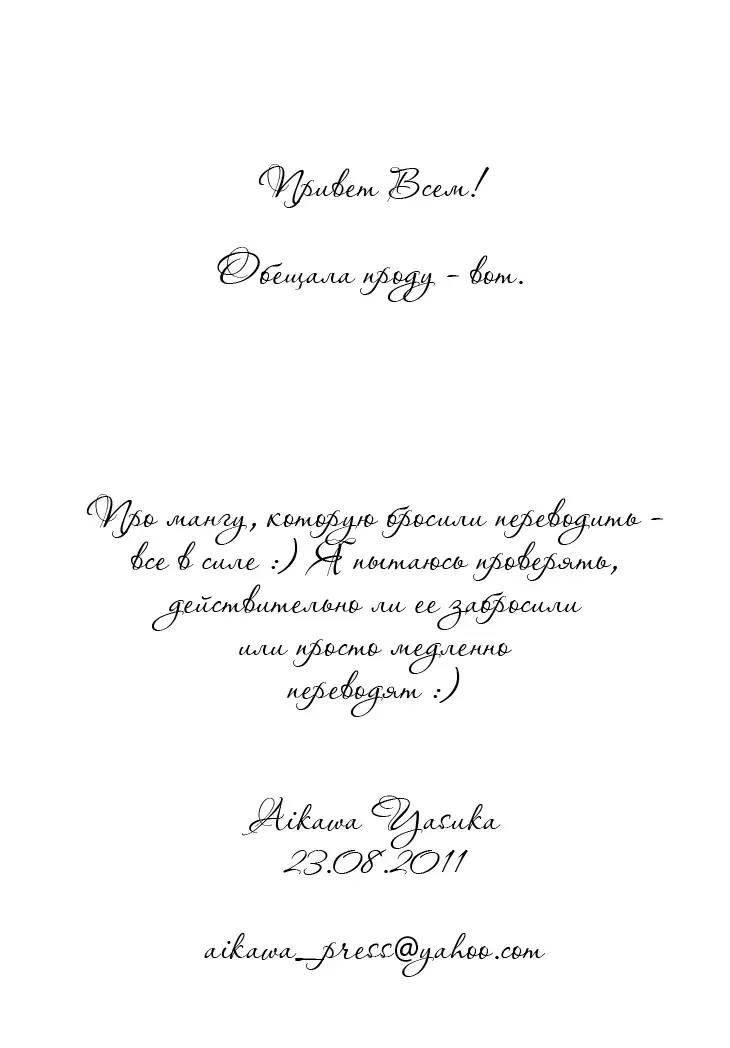 Привет Всем!
Обещала проду - вот.
Про мангу, которую бросили переводить -
все в силе :) Я пытаюсь проверять,
действительно ли ее забросили
или просто медленно
переводят :)
Aikawa Yasuka
23.08.2011
aikawa_press@yahoo.com